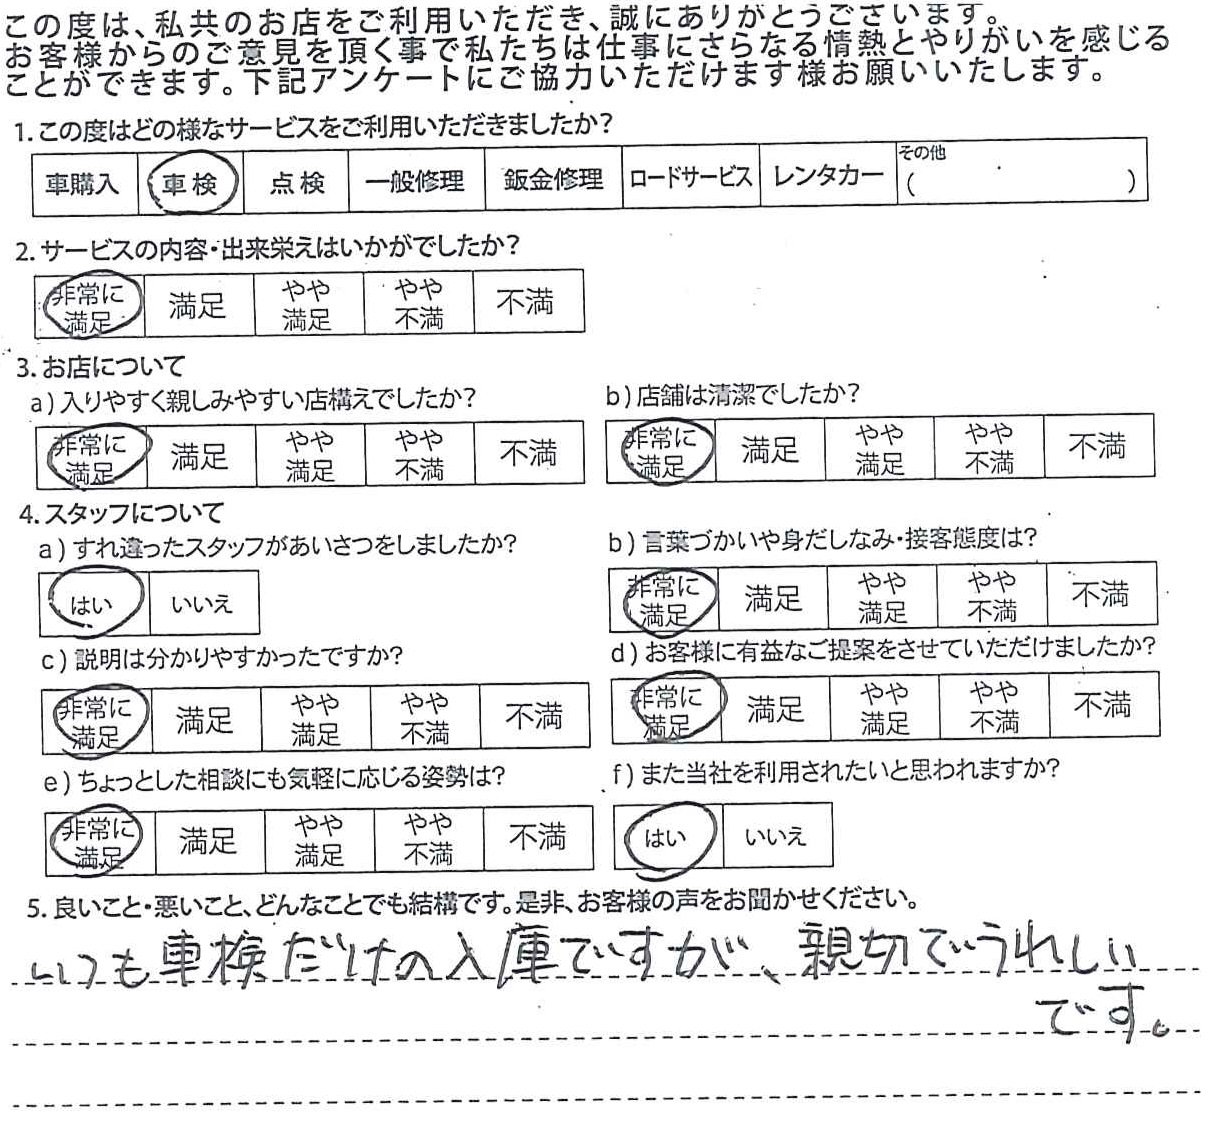 この度は、私共のお店をご利用いただき、誠にありがとうございます。
お客様からのご意見を頂く事で私たちは仕事にさらなる情熱とやりがいを感じる
ことができます。下記アンケートにご協力いただけます様お願いいたします。
1.この度はどの様なサービスをご利用いただきましたか?
車購入 車検 点検 一般修理 鈑金修理 ロードサービス レンタカー その他
( )
2.サービスの内容・出来栄えはいかがでしたか?
非常に満足 満足 やや満足 やや不満 不満
3.お店について
a)入りやすく親しみやすい店構えでしたか?
非常に満足 満足 やや満足 やや不満 不満
b)店舗は清潔でしたか?
非常に満足 満足 やや満足 やや不満 不満
4.スタッフについて
a)すれ違ったスタッフがあいさつをしましたか?
はい いいえ
b)言葉づかいや身だしなみ・接客態度は?
非常に満足 満足 やや満足 やや不満 不満
c)説明は分かりやすかったですか?
非常に満足 満足 やや満足 やや不満 不満
d)お客様に有益なご提案をさせていただけましたか?
非常に満足 満足 やや満足 やや不満 不満
e)ちょっとした相談にも気軽に応じる姿勢は?
非常に満足 満足 やや満足 やや不満 不満
f)また当社を利用されたいと思われますか?
はい いいえ
5.良いこと・悪いこと、どんなことでも結構です。是非、お客様の声をお聞かせください。
いつも車検だけの入庫ですが、親切でうれしい
です。